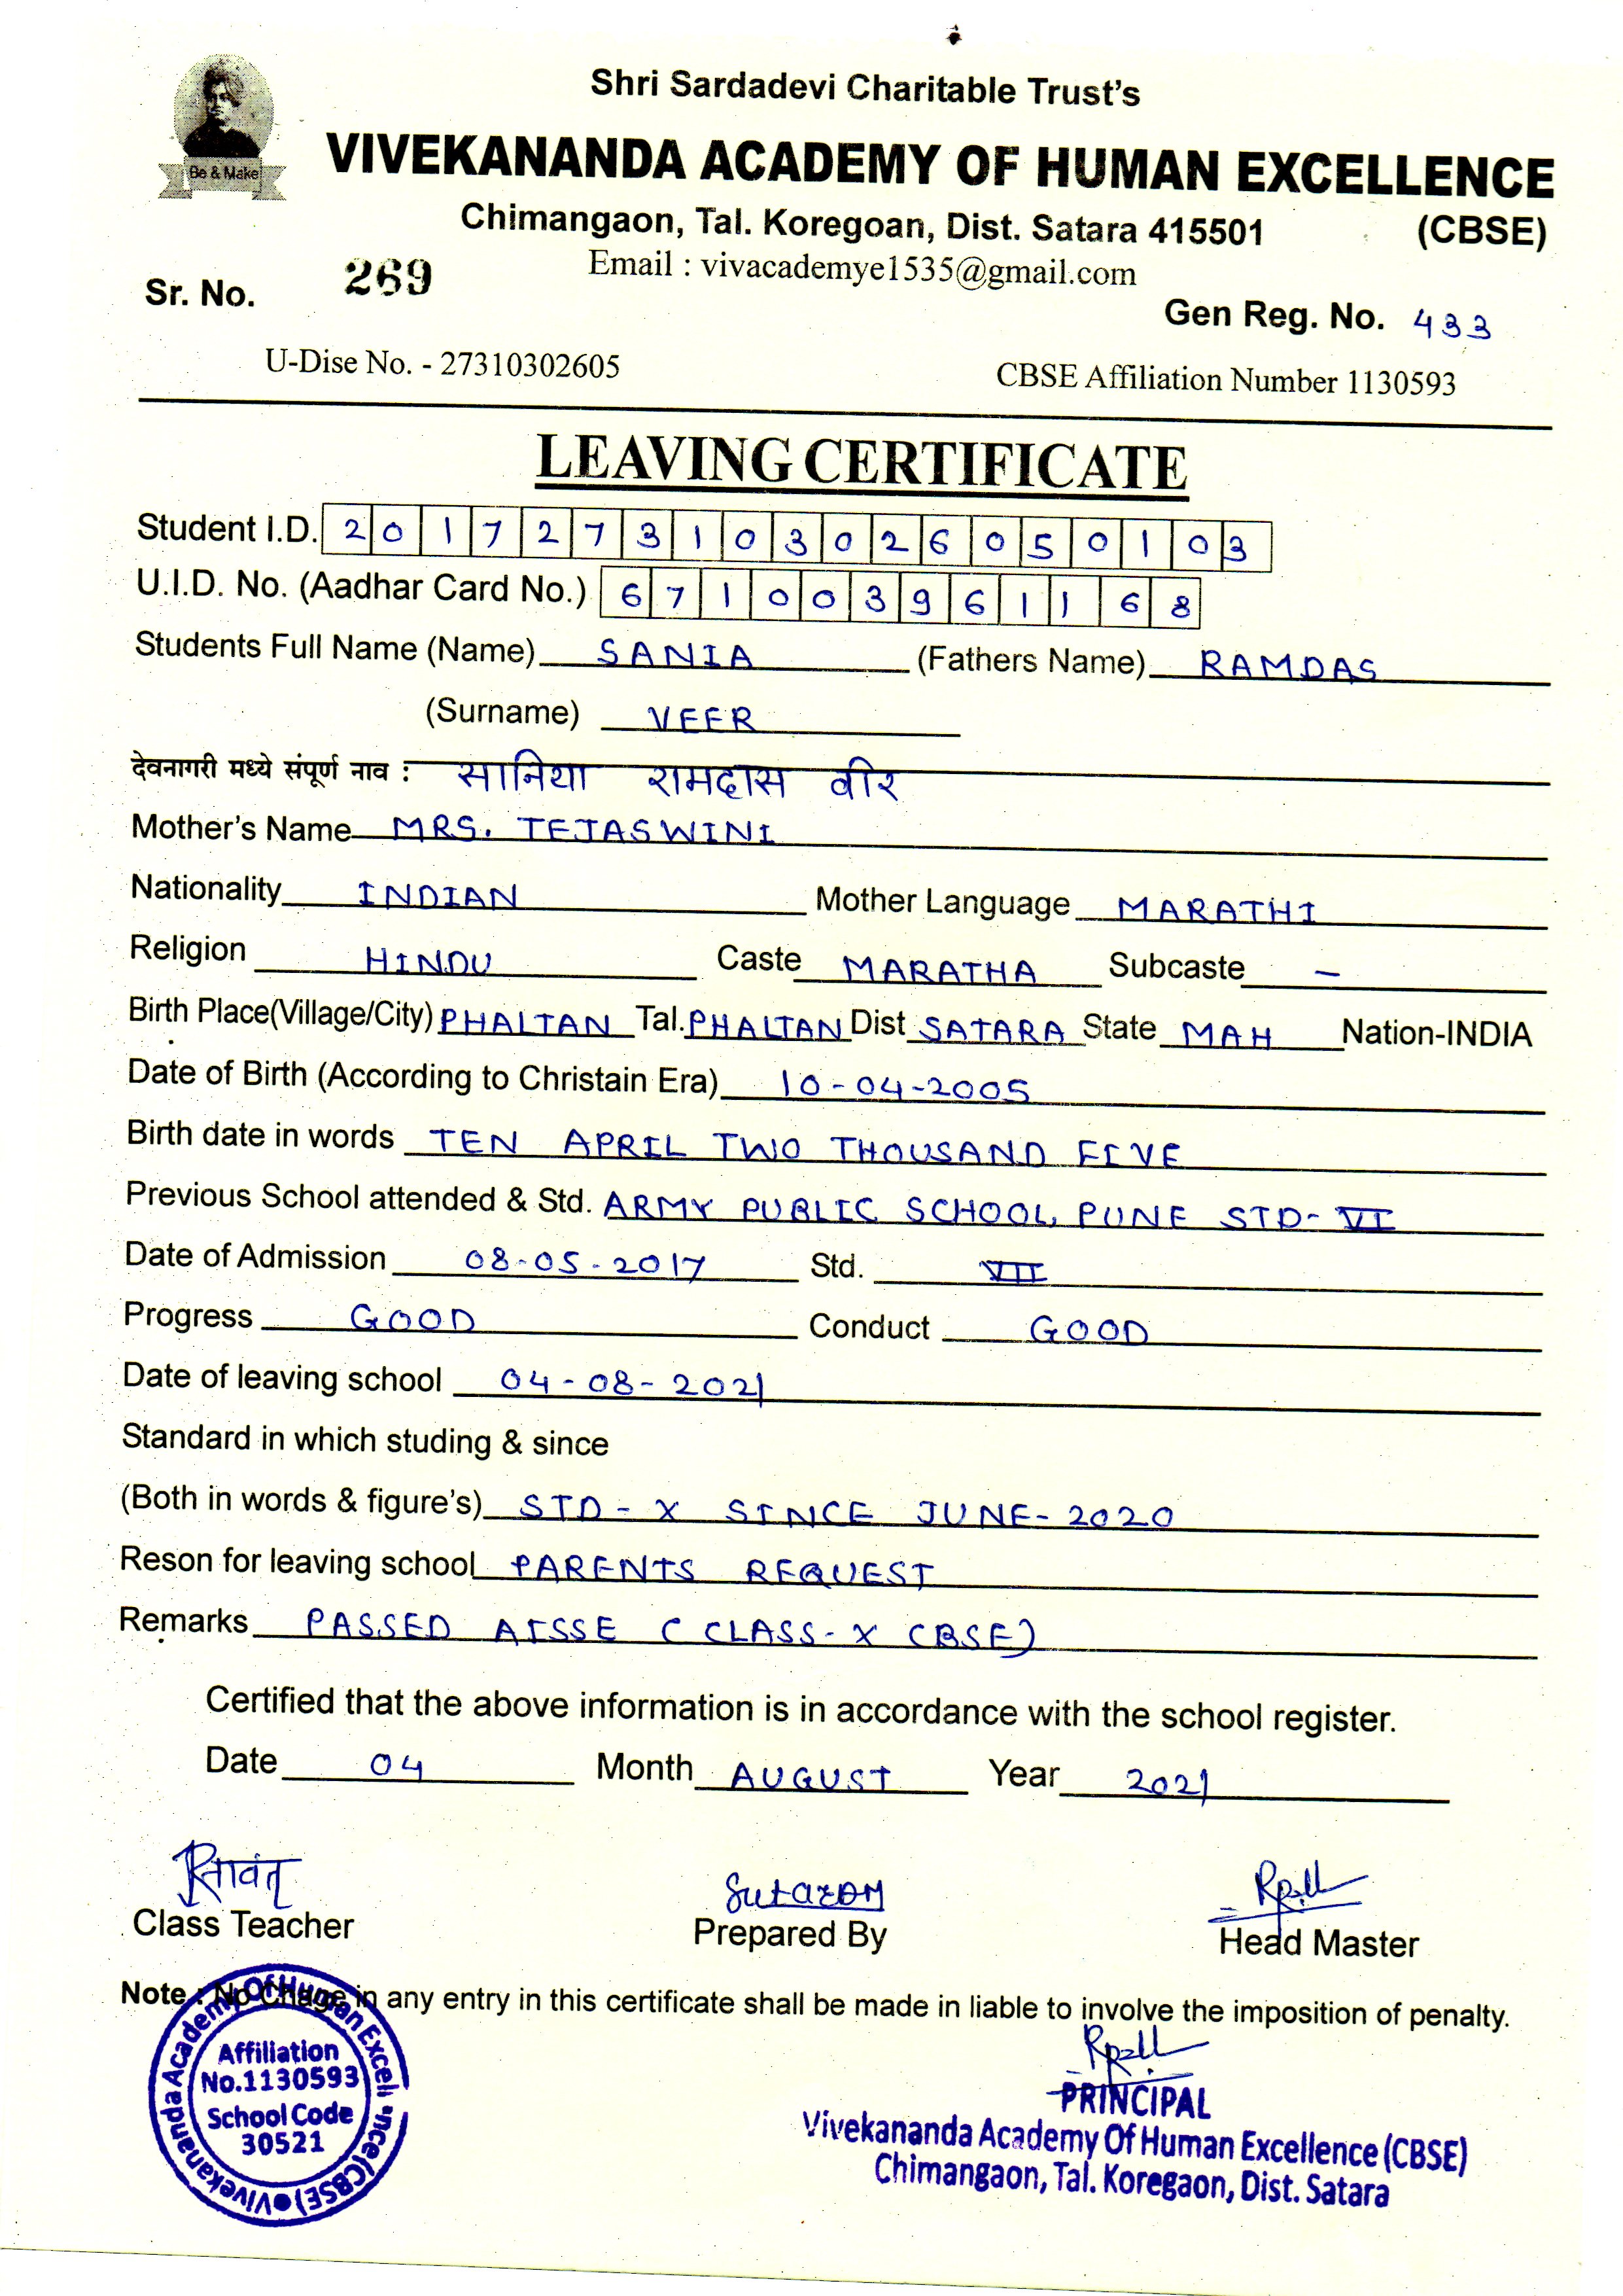 Shri Sardadevi Charitable Trust's
VIVEKANANDA ACADEMY OF HUMAN EXCELLENCE
Be & Make
Chimangaon, Tal. Koregoan, Dist. Satara 415501 (CBSE)
Email : vivacademye1535@gmail.com
Sr. No. 269
Gen Reg. No. 433
U-Dise No. - 27310302605 CBSE Affiliation Number 1130593
LEAVING CERTIFICATE
Student I.D. 2017273103026050103
U.I.D. No. (Aadhar Card No.) 671003961168
Students Full Name (Name) SANIA (Fathers Name) RAMDAS
(Surname) VEER
देवनागरी मध्ये संपूर्ण नाव : सानिया रामदास वीर
Mother's Name MRS. TEJASWINI
Nationality INDIAN Mother Language MARATHI
Religion HINDU Caste MARATHA Subcaste –
Birth Place(Village/City) PHALTAN Tal. PHALTAN Dist SATARA State MAH Nation-INDIA
Date of Birth (According to Christain Era) 10-04-2005
Birth date in words TEN APRIL TWO THOUSAND FIVE
Previous School attended & Std. ARMY PUBLIC SCHOOL, PUNE STD- VI
Date of Admission 08-05-2017 Std. VII
Progress GOOD Conduct GOOD
Date of leaving school 04-08-2021
Standard in which studing & since
(Both in words & figure's) STD - X SINCE JUNE-2020
Reson for leaving school PARENTS REQUEST
Remarks PASSED AISSE ( CLASS-X CBSE)
Certified that the above information is in accordance with the school register.
Date 04 Month AUGUST Year 2021
Class Teacher Prepared By Head Master
Note : No Chage in any entry in this certificate shall be made in liable to involve the imposition of penalty.
Vivekananda Academy Of Human Excellence (CBSE)
Affiliation
No.1130593
School Code
30521
PRINCIPAL
Vivekananda Academy Of Human Excellence (CBSE)
Chimangaon, Tal. Koregaon, Dist. Satara